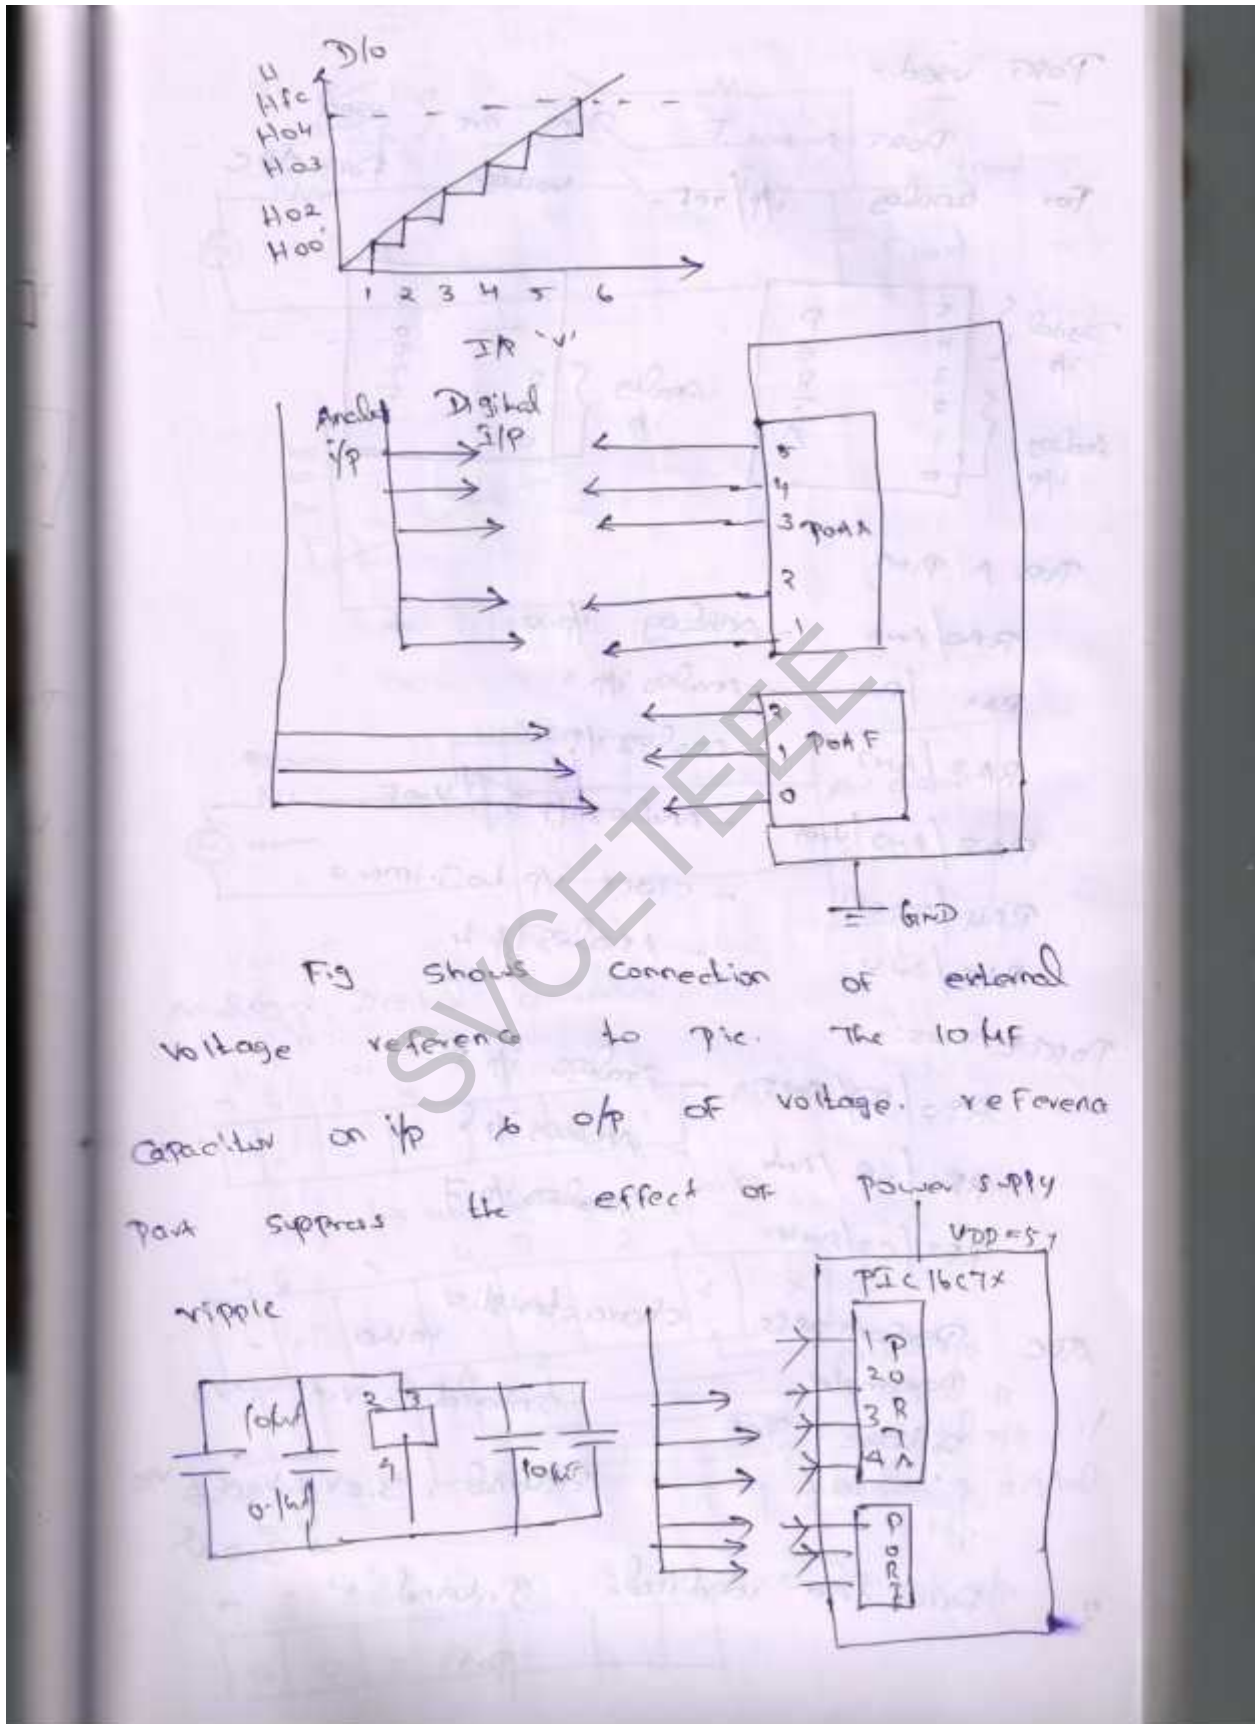 D/o
H
Hfc
H04
H03
H02
H00
1 2 3 4 5 6
I/P 'V'
Analog Digital
i/p I/P
5
4
3 PORT A
2
1
2
1 PORT F
0
GND
Fig shows connection of external
voltage reference to pic. The 10 µF
capacitor on i/p & o/p of voltage. reference
part suppress the effect of power supply
ripple
VDD = 5v
PIC16C7X
1 P
2 O
3 R
T
4 A
P
O
R
10µf
2 3
4
10µF
0.1µf
SVCETEEE